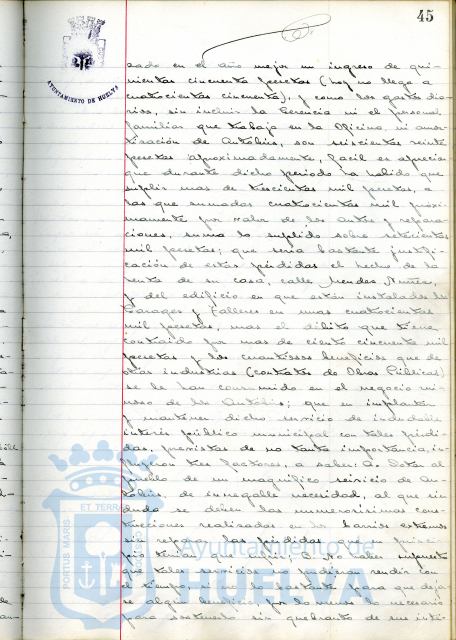 45
AYUNTAMIENTO DE HUELVA
sado en el año mejor un ingreso de qui-
nientas cincuenta pesetas (hoy no llega a
cuatrocientas cincuenta), y como los gastos dia-
rios, sin incluir la Gerencia ni el personal
familiar que trabaja en la Oficina, ni amor-
tización de Autobús, son seiscientas veinte
pesetas aproximadamente, facil es apreciar
que durante dicho periodo ha habido que
suplir mas de trescientas mil pesetas, a
las que sumadas cuatrocientas mil próxi-
mamente por valor de los autos y repara-
ciones, suma lo suplido sobre setecientas
mil pesetas; que seria bastante justifi-
cación de estas pérdidas el hecho de la
venta de su casa, calle Mendez Nuñez,
y del edificio en que están instalados los
Garages y Talleres en unas cuatrocientas
mil pesetas, mas el débito que tiene
contraido por mas de ciento cincuenta mil
pesetas y los cuantiosos beneficios que de
otras industrias (contratas de Obras Públicas)
se le han consumido en el negocio rui-
noso de los Autobús; que en implantar
y mantener dicho servicio de indudable
interés público municipal con tales pérdi-
das, previstas de no tanta importancia, in-
fluyeron tres factores, a saber: A. Dotar al
pueblo de un magnífico servicio de Au-
tobús, de innegable necesidad, al que sin
duda se deben las numerosísimas cons-
trucciones realizadas en los barrios extremos
sin reparar las pérdidas que en princi-
pio tenian que sufrir; B. No haber supuesto
que tales servicios no pudieran rendir con
el tiempo, si no lo bastante para que deja-
se algun beneficio, por lo menos lo necesario
para sostenerlo sin quebranto de sus inté-
PORTUS MARIS ET TERRAE
Ayuntamiento de
HUELVA